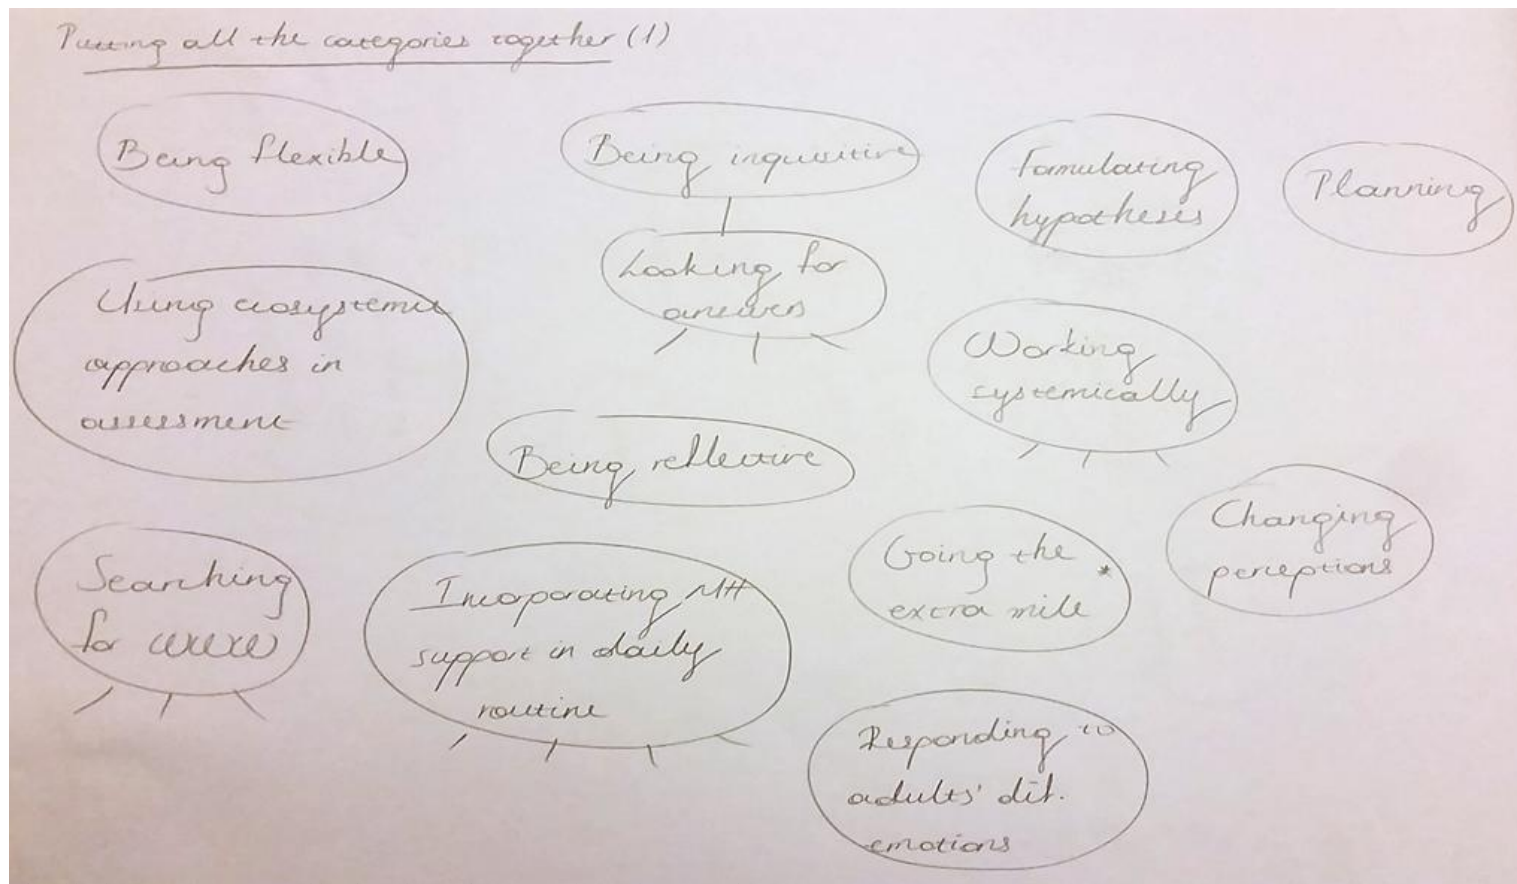 Putting all the categories together (1)
Being flexible
Being inquisitive
Formulating
hypotheses
Planning
Looking for
answers
Using ecosystemic
approaches in
assessment
Working
systemically
Being reflective
Changing
perceptions
Going the *
extra mile
Searching
for www
Incorporating MH
support in daily
routine
Responding to
adults' dif.
emotions